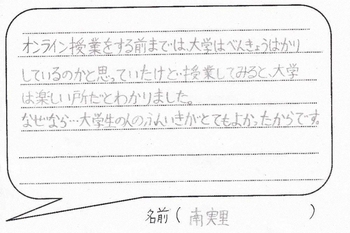 オンライン授業をする前までは、大学はべんきょうばかり
しているのかと思っていたけど…授業してみると、大学
は楽しい所だとわかりました。
なぜなら…大学生の人のふんいきがとてもよかったからです。
名前(南実里)